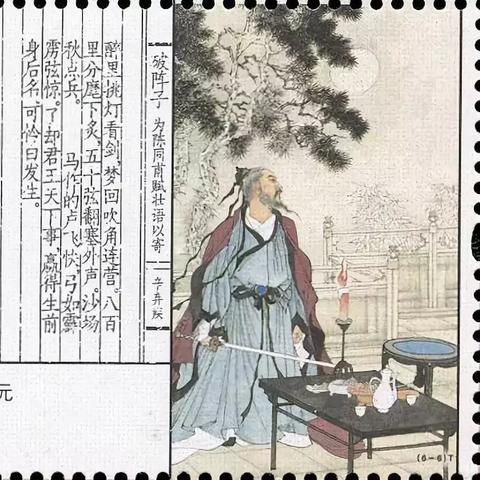 破阵子 为陈同甫赋壮语以寄 辛弃疾
醉里挑灯看剑,梦回吹角连营。八百
里分麾下炙,五十弦翻塞外声。沙场
秋点兵。 马作的卢飞快,弓如霹
雳弦惊。了却君王天下事,赢得生前
身后名。可怜白发生。
元
(6-6)T